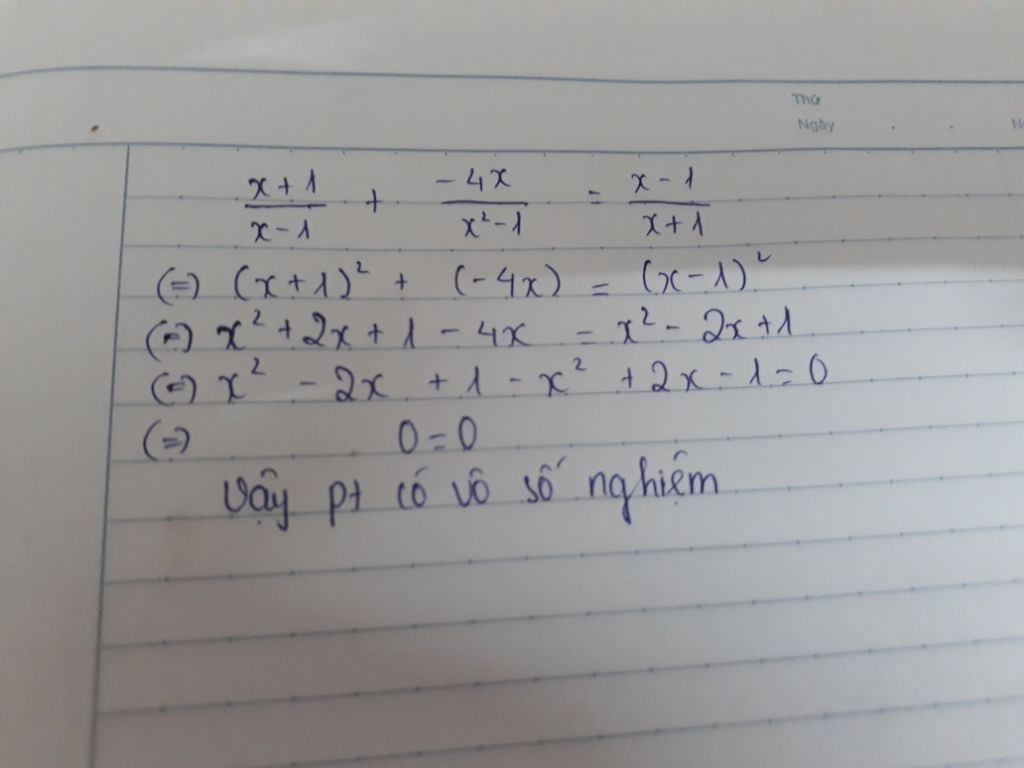 Thứ
Ngày
x+1/x-1 + -4x/x²-1 = x-1/x+1
(=) (x+1)² + (-4x) = (x-1)²
(=) x² + 2x + 1 - 4x = x² - 2x + 1
(=) x² - 2x + 1 - x² + 2x - 1 = 0
(=) 0 = 0
Vậy pt có vô số nghiệm